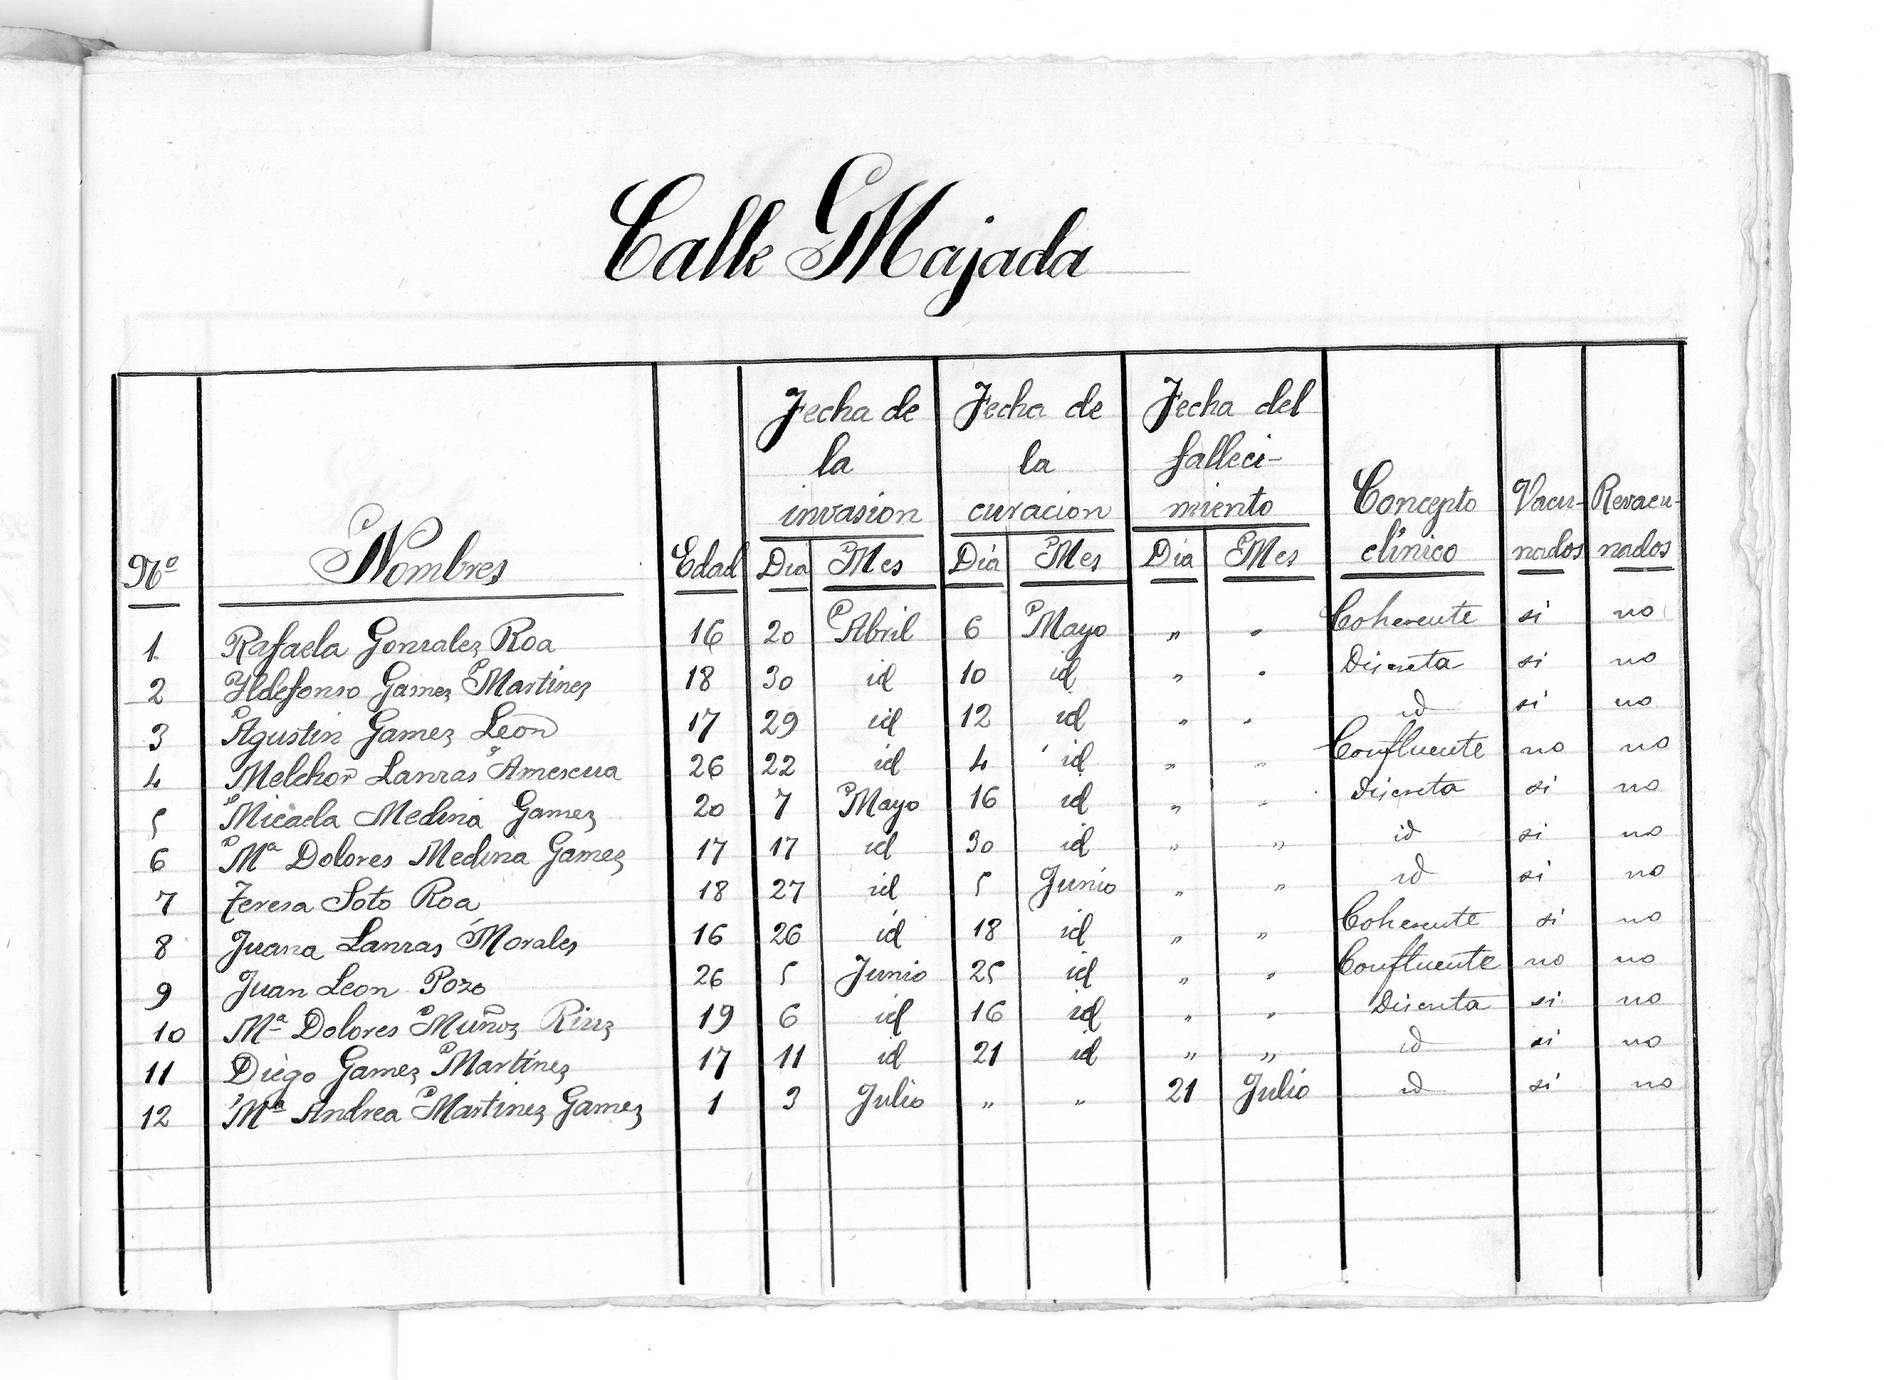 Calle Majada
Nº Nombres Edad Fecha de la invasion Fecha de la curacion Fecha del falleci-miento Concepto clínico Vacu-nados Revacu-nados
Dia Mes Dia Mes Dia Mes
1 Rafaela Gonzalez Roa 16 20 Abril 6 Mayo " " Coherente si no
2 Yldefonso Gamez Martinez 18 30 id 10 id " " Discreta si no
3 Agustin Gamez Leon 17 29 id 12 id " " id si no
4 Melchor Lanzas Amescua 26 22 id 4 id " " Confluente no no
5 Micaela Medina Gamez 20 7 Mayo 16 id " " Discreta si no
6 Mª Dolores Medina Gamez 17 17 id 30 id " " id si no
7 Teresa Soto Roa 18 27 id 5 Junio " " id si no
8 Juana Lanzas Morales 16 26 id 18 id " " Coherente si no
9 Juan Leon Pozo 26 5 Junio 25 id " " Confluente no no
10 Mª Dolores Muñoz 19 6 id 16 id " " Discreta si no
11 Diego Gamez Martinez 17 11 id 21 id " " id si no
12 Mª Andrea Martinez Gamez 1 3 Julio " " 21 Julio id si no